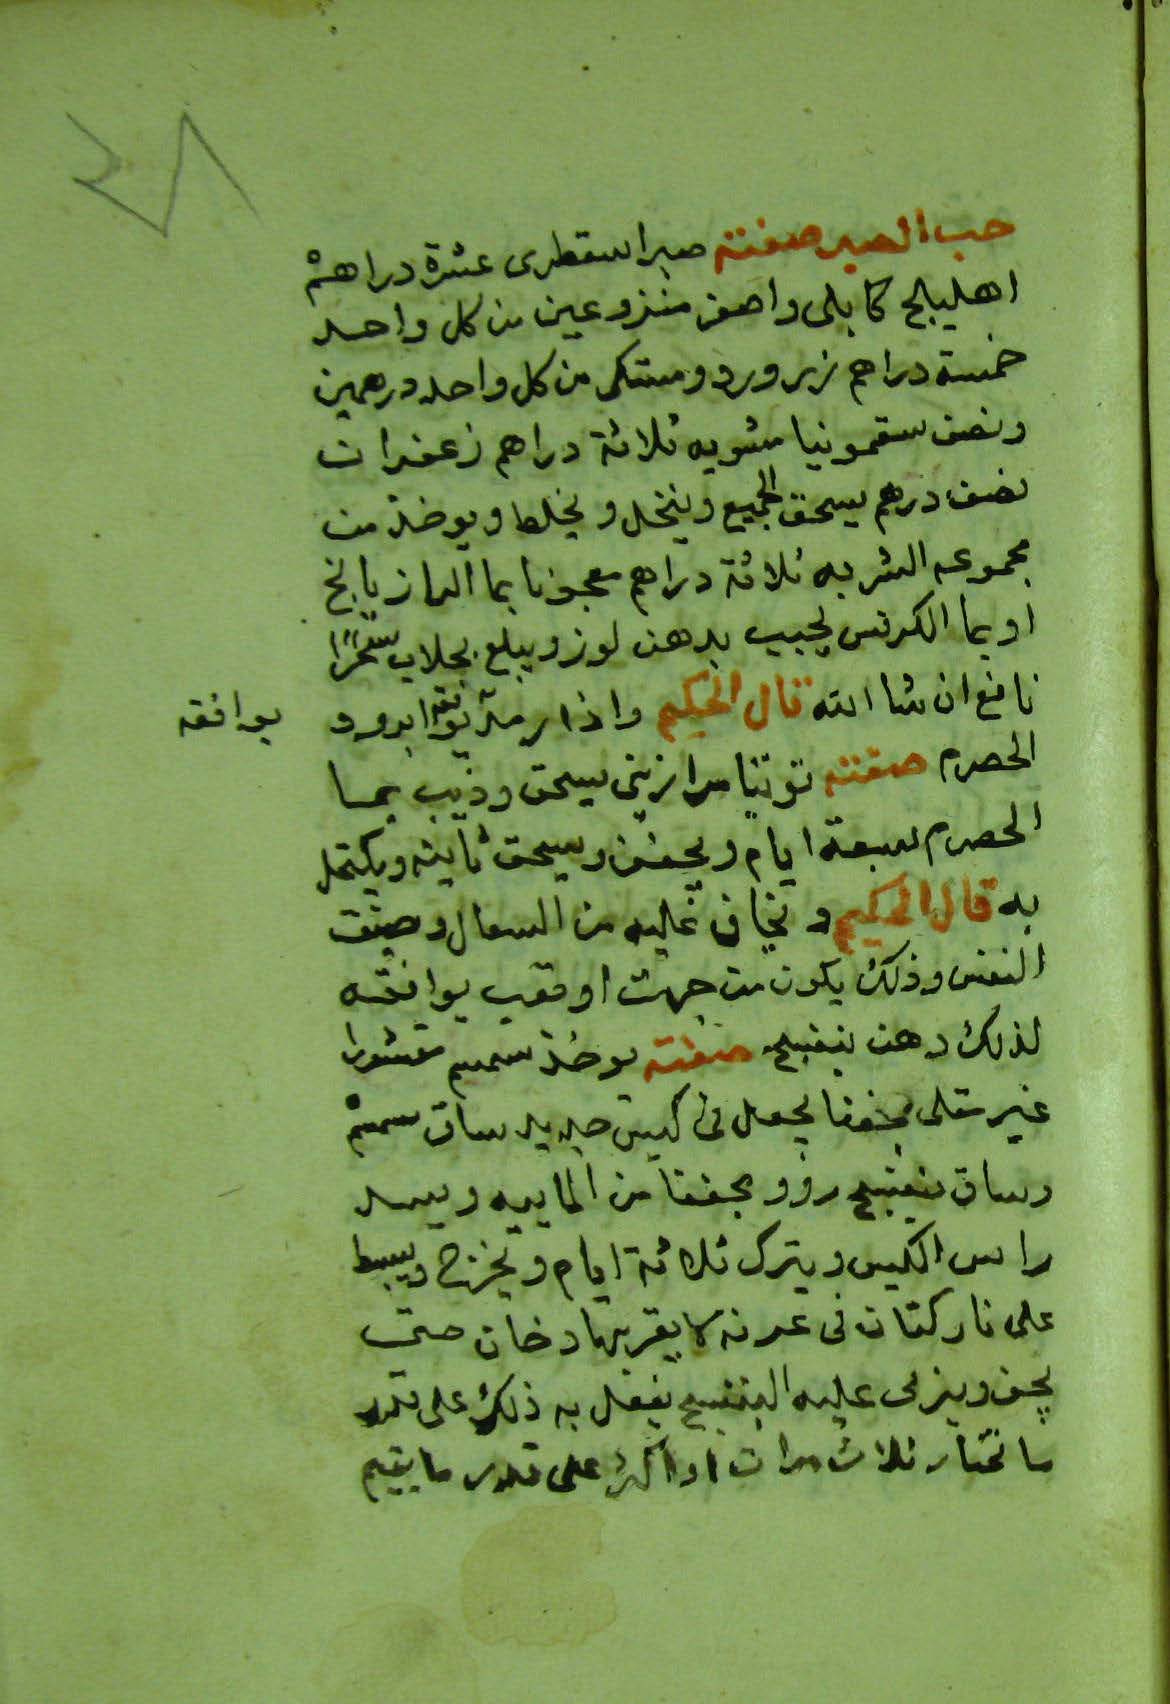 حب الصبر صفته صبر اسقطرى عشرة دراهم
اهليلج كابلى واصفر منزوعين من كل واحد
خمسة دراهم زر ورد ومستكى من كل واحد درهمين
ونصف سقمونيا مشويه ثلاثة دراهم زعفران
نصف درهم يسحق الجميع وينخل ويخلط ويوخذ من
مجموعه الشربه ثلاثة دراهم معجونا بما الرازيانج
او بما الكرفس يحبب بدهن لوز ويبلع بجلاب سحرًا
نافع ان شا الله قال الحكيم واذا رمد يوافقه ابرود
يوافقه
الحصرم صفته توتيا مرازبى يسحق وذيب بما
الحصرم سبعة ايام ويجفف ويسحق ثانيه ويكتحل
به قال الحكيم ويخاف عليه من السعال وضيق
النفس وذلك يكون من جهت يوافقه
لذلك دهن بنفسج صفته يوخذ سمسم مقشورا
غير مقلى مجففا يجعل فى كيس جديد ساف سمسم
وساف بنفسج مجففا من الماييه ويسد
راس الكيس ويترك ثلاثة ايام ويخرج ويبسط
على نار كتان فى غرفه لا يقربها دخان حتى
يجف ويرمى عليه البنفسج يفعل به ذلك على قدر
ما تختار ثلاث مرات او اكثر على قدر ما يقيم